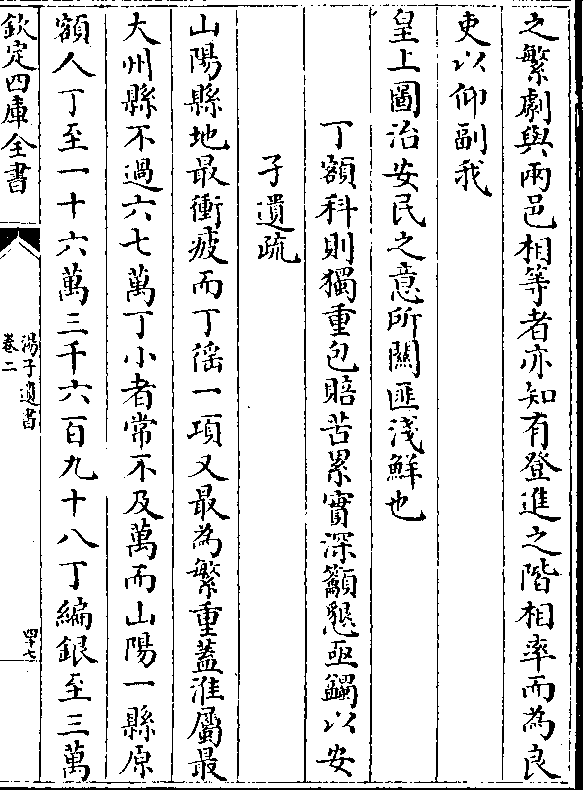 之繁劇與兩邑相等者亦知有登進之階相率而為良
吏以仰副我
皇上圖治安民之意所關匪淺鮮也
丁額科則獨重包賠苦累實深籲懇亟蠲以安
孑遺疏
山陽縣地最衝疲而丁徭一項又最為繁重蓋淮屬最
大州縣不過六七萬丁小者常不及萬而山陽一縣原
額人丁至一十六萬三千六百九十八丁編銀至三萬
欽定四庫全書
湯子遺書
卷二
四十七